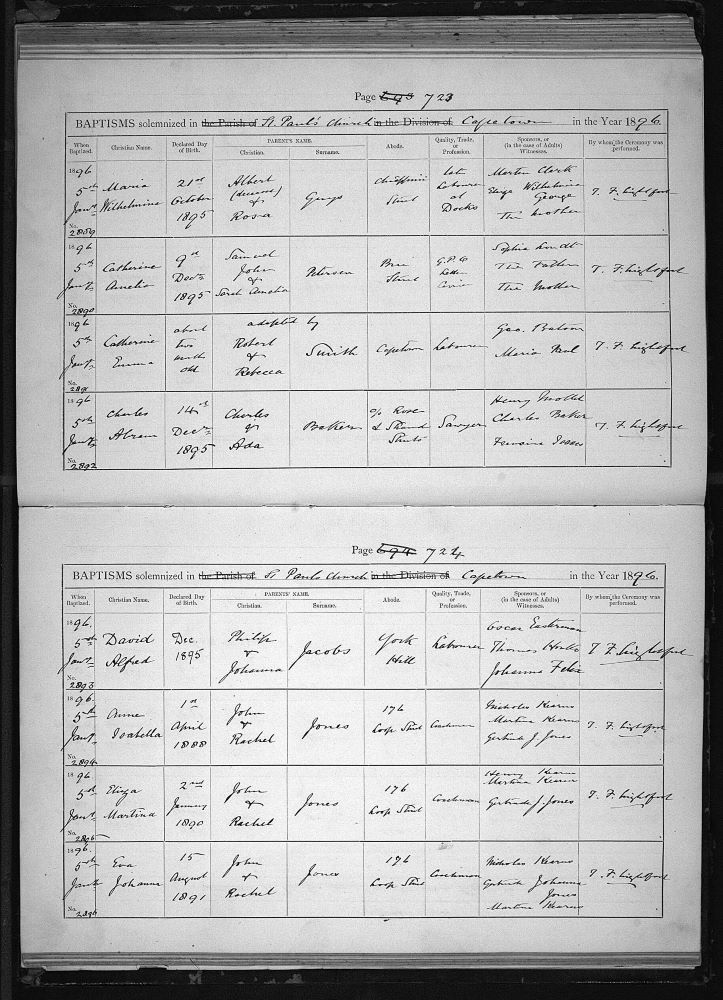 Page 693 723
BAPTISMS solemnized in the Parish of St. Paul's Church in the Division of Capetown in the Year 1896.
When Baptized.
Christian Name.
Declared Day of Birth.
PARENT'S NAME.
Christian.
Surname.
Abode.
Quality, Trade, or Profession.
Sponsors, or (in the case of Adults) Witnesses.
By whom the Ceremony was performed.
1896
5th
Jany
No. 2889
Maria
Wilhelmina
21st
October
1895
Albert
(deceased)
&
Rosa
Street
late
Labourer
at
Docks
Martin Clark
Eliza Wilhelmina
George
The Mother
T. F. Lightfoot
1896
5th
Jany
No. 2890
Catherine
Amelia
9th
Decr
1895
Samuel
John
&
Sarah Amelia
Petersen
Bree
Street
G.P.O
Letter
Carrier
Sophia Arndt
The Father
The Mother
T. F. Lightfoot
1896
5th
Jany
No. 2891
Catherine
Emma
about
two
months
old
adopted by
Robert
&
Rebecca
Smith
Capetown
Labourer
Geo.
Maria
T. F. Lightfoot
1896
5th
Jany
No. 2892
Charles
Abram
14th
Decr
1895
Charles
&
Ada
Baker
c/o Rose
& Strand
Streets
Sawyer
Henry
Charles Baker
Isaacs
T. F. Lightfoot
Page 694 724
BAPTISMS solemnized in the Parish of St Pauls Church in the Division of Capetown in the Year 1896.
When Baptized.
Christian Name.
Declared Day of Birth.
PARENTS' NAME.
Christian.
Surname.
Abode.
Quality, Trade, or Profession.
Sponsors, or (in the case of Adults) Witnesses.
By whom the Ceremony was performed.
1896.
5th
Jany
No. 2893
David
Alfred
Dec.
1895
Philip
&
Johanna
Jacobs
York
Hill
Labourer
Oscar Easterman
Thomas
Johanna Felix
T. F. Lightfoot
1896.
5th
Jany
No. 2894
Anne
Isabella
1st
April
1888
John
&
Rachel
Jones
176
Loop Street
Coachman
Nicholas Kearns
Martina Kearns
Gertrude J. Jones
T. F. Lightfoot
1896
5th
Jany
No. 2895
Eliza
Martina
2nd
January
1890
John
&
Rachel
Jones
176
Loop Street
Coachman
Henry Kearns
Martina Kearns
Gertrude J. Jones
T. F. Lightfoot
1896.
5th
Jany
No. 2896
Eva
Johanna
15
August
1891
John
&
Rachel
Jones
176
Loop Street
Coachman
Nicholas Kearns
Gertrude Johanna
Jones
Martina Kearns
T. F. Lightfoot